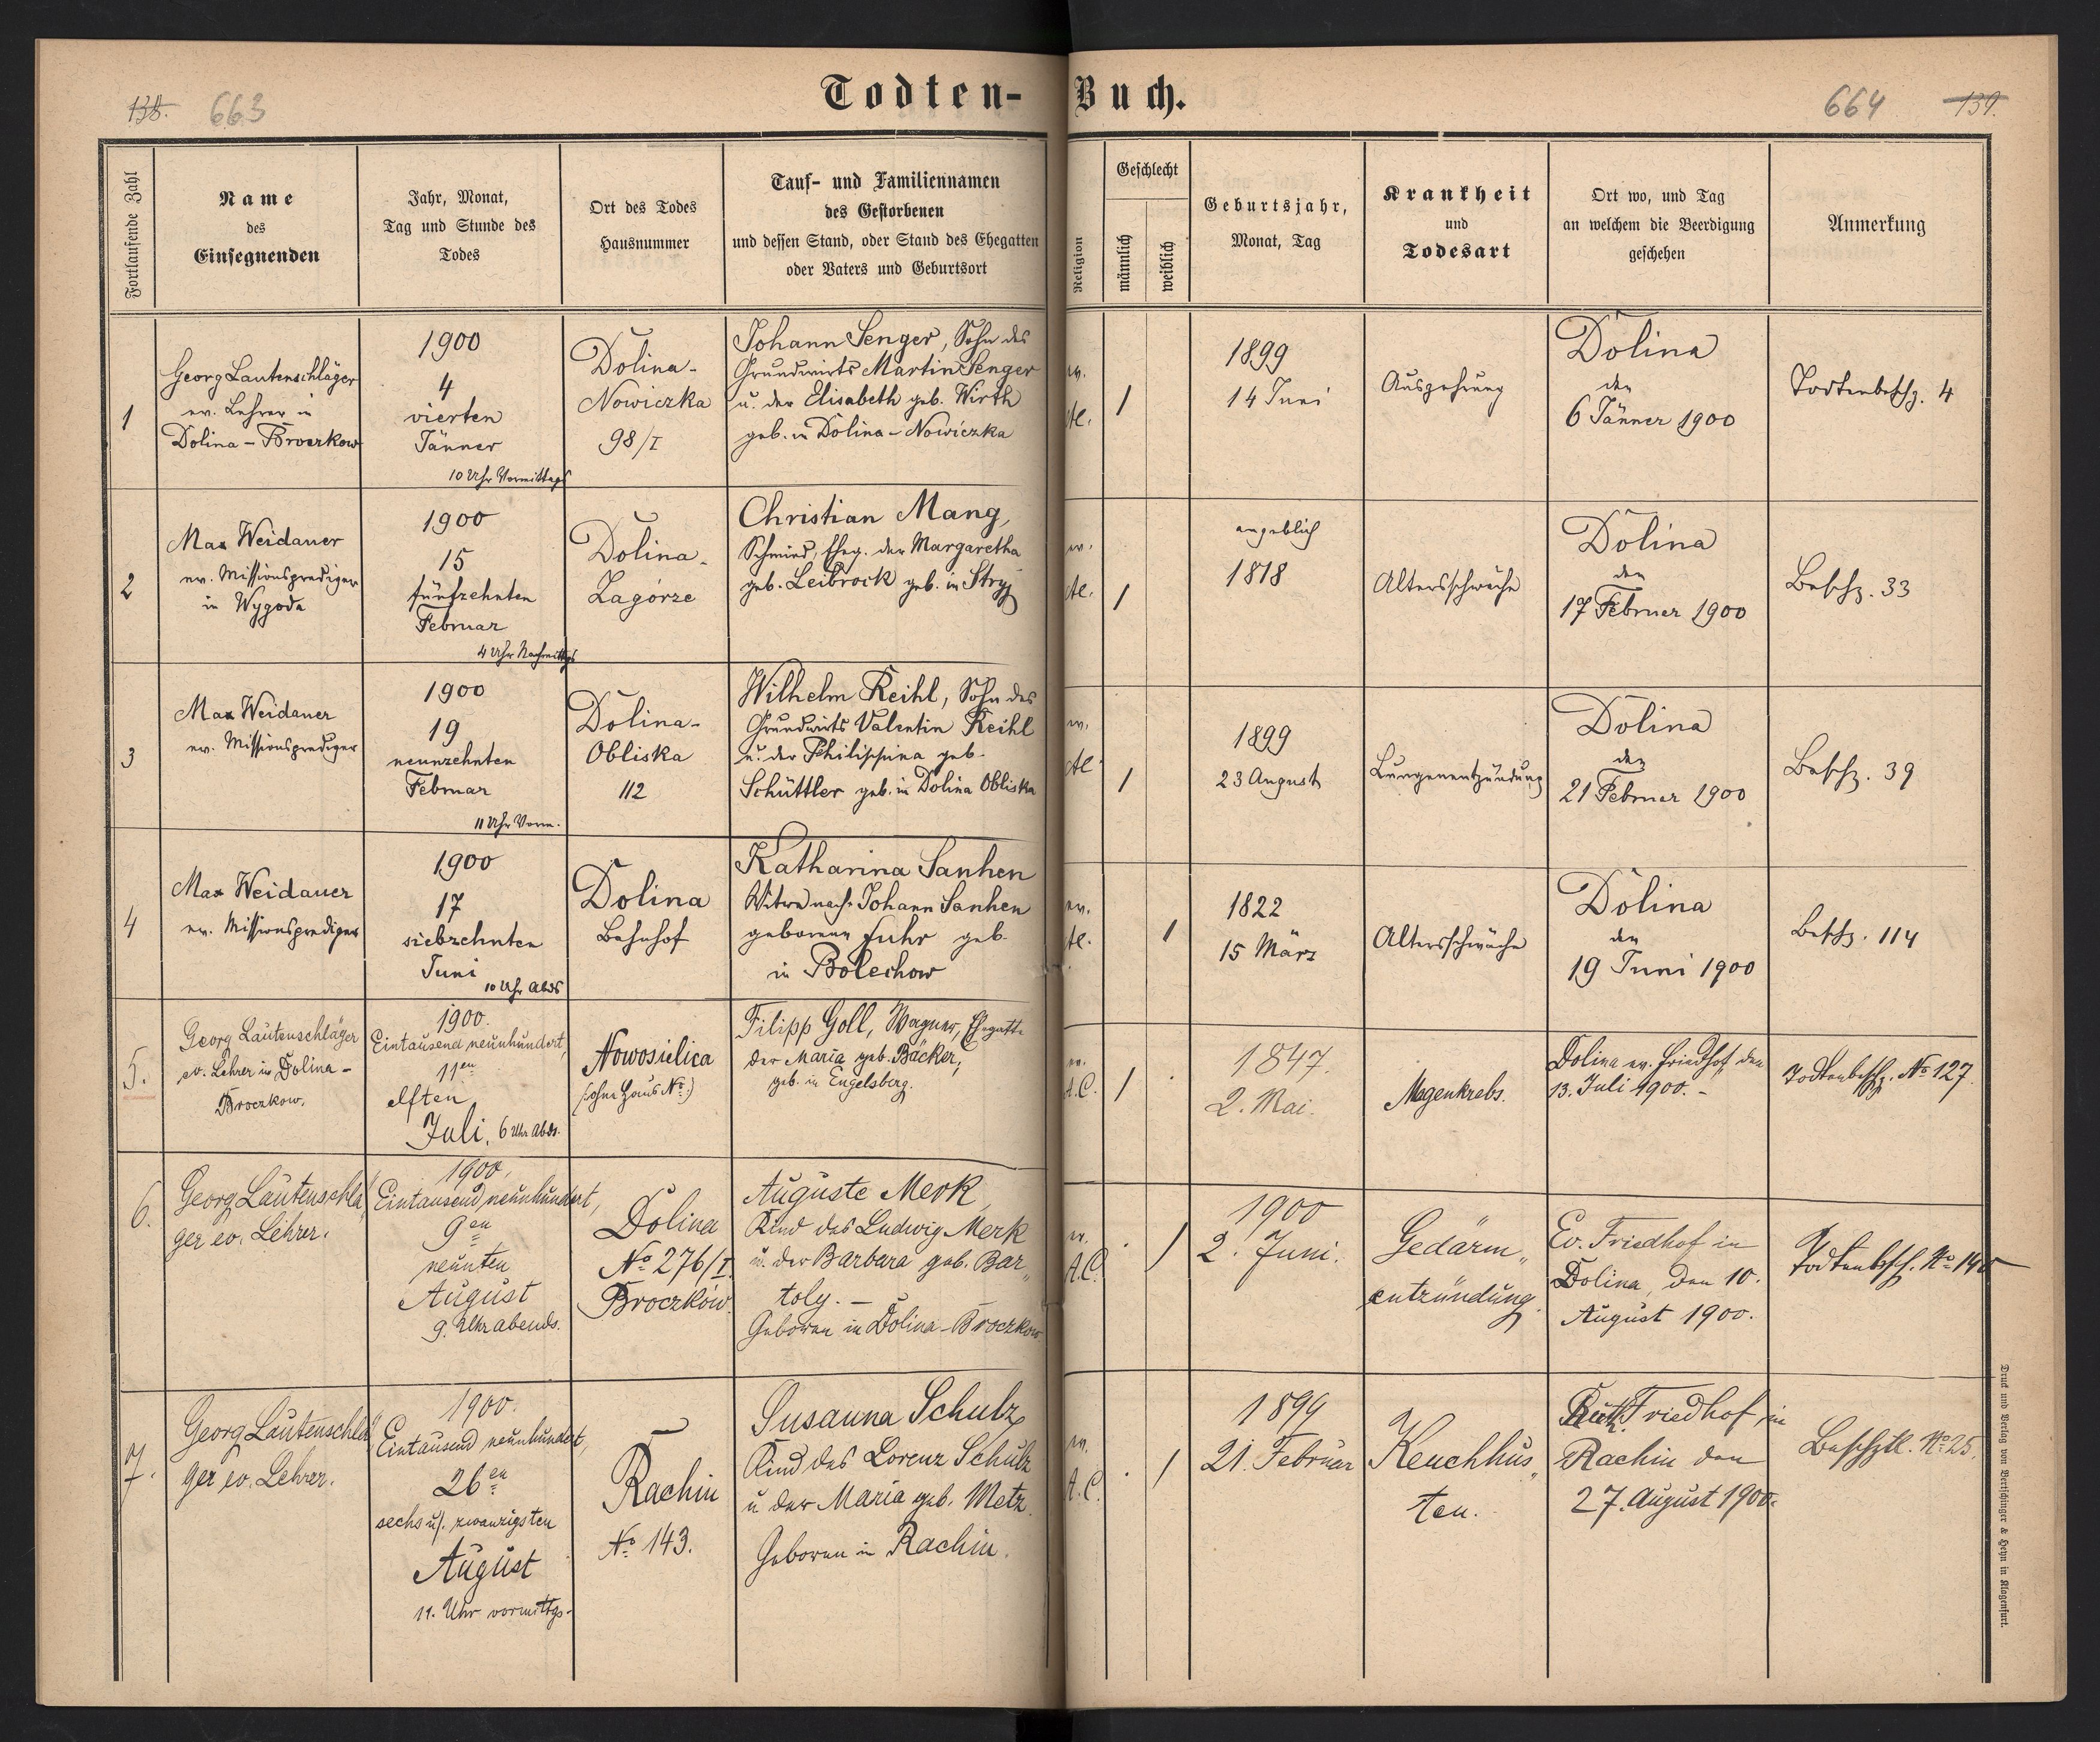 Todten-Buch.
138. 663
664 139.
Fortlaufende Zahl
Name
des
Einsegnenden
Jahr, Monat,
Tag und Stunde des
Todes
Ort des Todes
Hausnummer
Tauf- und Familiennamen
des Gestorbenen
und dessen Stand, oder Stand des Ehegatten
oder Vaters und Geburtsort
Religion
Geschlecht
männlich
weiblich
Geburtsjahr,
Monat, Tag
Krankheit
und
Todesart
Ort wo, und Tag
an welchem die Beerdigung
geschehen
Anmerkung
1
Georg Lautenschläger
ev. Lehrer in
Dolina-Broczkow
1900
4
vierten
Jänner
10 Uhr Vormittags
Dolina-
Nowiczka
98/I
Johann Senger, Sohn des
Grundwirts Martin Senger
u. der Elisabeth geb. Wirth
geb. in Dolina-Nowiczka
ev.
1
1899
14 Juni
Auszehrung
Dolina
den
6 Jänner 1900
Todtenbeschz. 4
2
Max Weidauer
ev. Missionsprediger
in Wygoda
1900
15
fünfzehnten
Februar
4 Uhr Nachmittgs
Dolina-
Zagórze
Christian Mang,
Schmied, Eheg. der Margaretha
geb. Leibrock geb. in Stryj
ev.
1
angeblich
1818
Altersschwäche
Dolina
den
17 Februar 1900
Beschz. 33
3
Max Weidauer
ev. Missionsprediger
1900
19
neunzehnten
Februar
11 Uhr Vorm.
Dolina-
Obliska
112
Wilhelm Reihl, Sohn des
Grundwirts Valentin Reihl
u. der Philippina geb.
Schüttler geb. in Dolina Obliska
ev.
1
1899
23 August
Lungenentzündung
Dolina
den
21 Februar 1900
Beschz. 39
4
Max Weidauer
ev. Missionsprediger
1900
17
siebzehnten
Juni
10 Uhr Abds
Dolina
Bahnhof
Katharina Sanhen
Witwe nach Johann Sanhen
geborene Fuhr geb.
in Bolechow
ev.
1
1822
15 März
Altersschwäche
Dolina
den
19 Juni 1900
Beschz. 114
5.
Georg Lautenschläger
ev. Lehrer in Dolina-
Broczkow.
1900.
Eintausend neunhundert,
11en
elften
Juli, 6 Uhr Abds.
Nowosielica
(ohne Haus No.)
Filipp Goll, Wagner, Ehegatte
der Maria geb. Bäcker,
geb. in Engelsberg.
ev.
A.C.
1
1847.
2. Mai.
Magenkrebs.
Dolina ev. Friedhof, den
13. Juli 1900.-
Todtenbeschz. No 127
6.
Georg Lautenschlä
ger ev. Lehrer.
1900.
Eintausend neunhundert,
9en
neunten
August
9. Uhr abends.
Dolina
No 276/I.
Broczków.
Auguste Merk
Kind des Ludwig Merk
u. der Barbara geb. Bar„
toly. –
Geboren in Dolina-Broczkow
ev.
A.C.
1
1900
2. Juni.
Gedärm„
entzündung.
Ev. Friedhof in
Dolina, den 10.
August 1900.
7.
Georg Lautenschlä
ger ev. Lehrer.
1900.
Eintausend neunhundert,
26en
sechs u. zwanzigsten
August
11. Uhr vormttgs.
Rachin
No 143.
Susanna Schulz
Kind des Lorenz Schulz
u der Maria geb. Metz.
Geboren in Rachin.
ev.
A.C.
1
1899
21. Februar
Keuchhus„
ten.
Friedhof in
Rachin den
27. August 1900.
No 25.
Druck und Verlag von Bertschinger & Heyn in Klagenfurt.